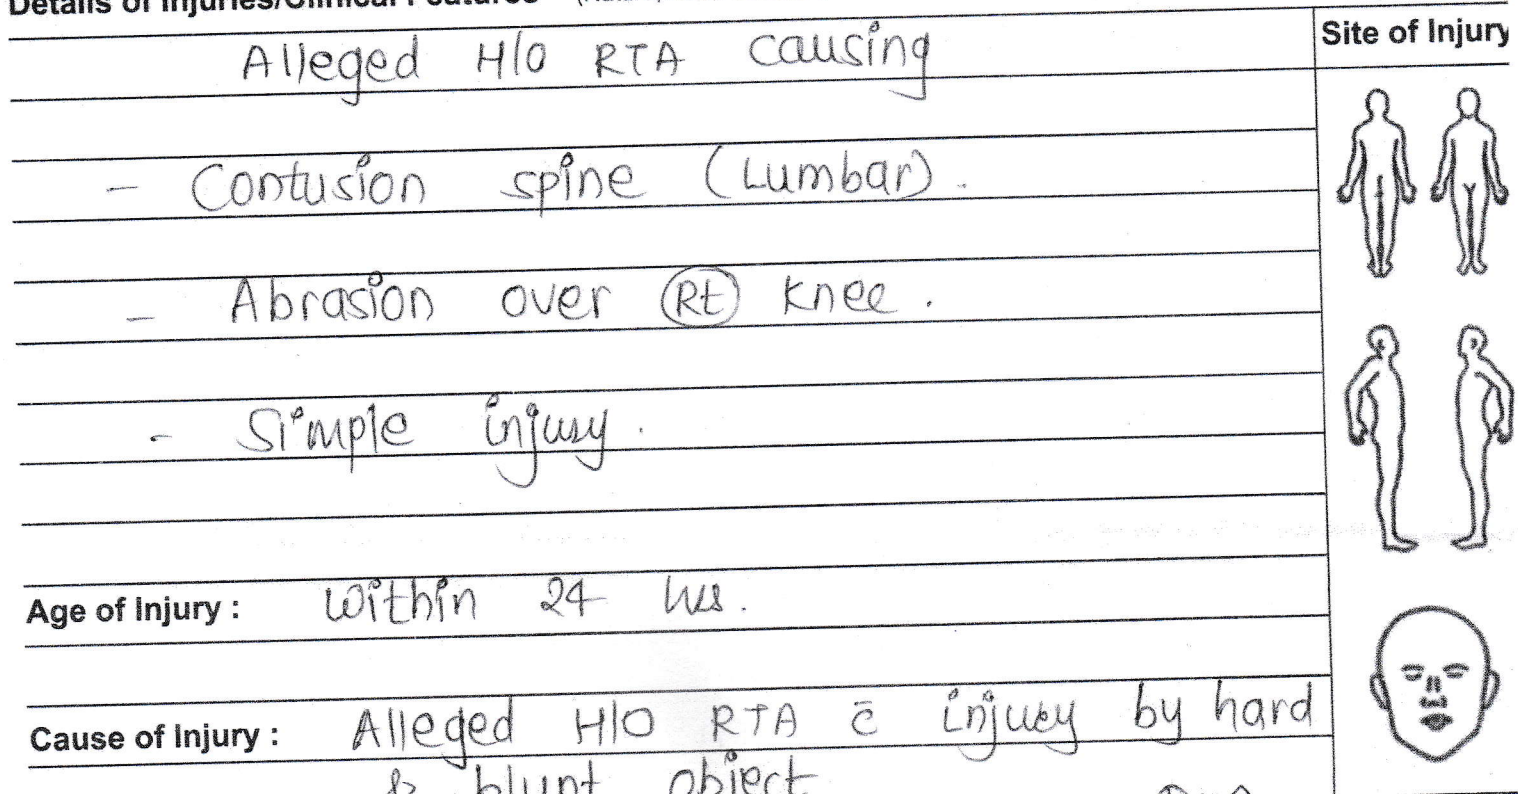 Details of Injuries/Clinical Features
Site of Injury
Alleged H/O RTA causing
- Contusion spine (Lumbar).
- Abrasion over Rt knee.
- Simple injury.
Age of Injury : Within 24 hrs.
Cause of Injury : Alleged H/O RTA c̄ injury by hard
& blunt object